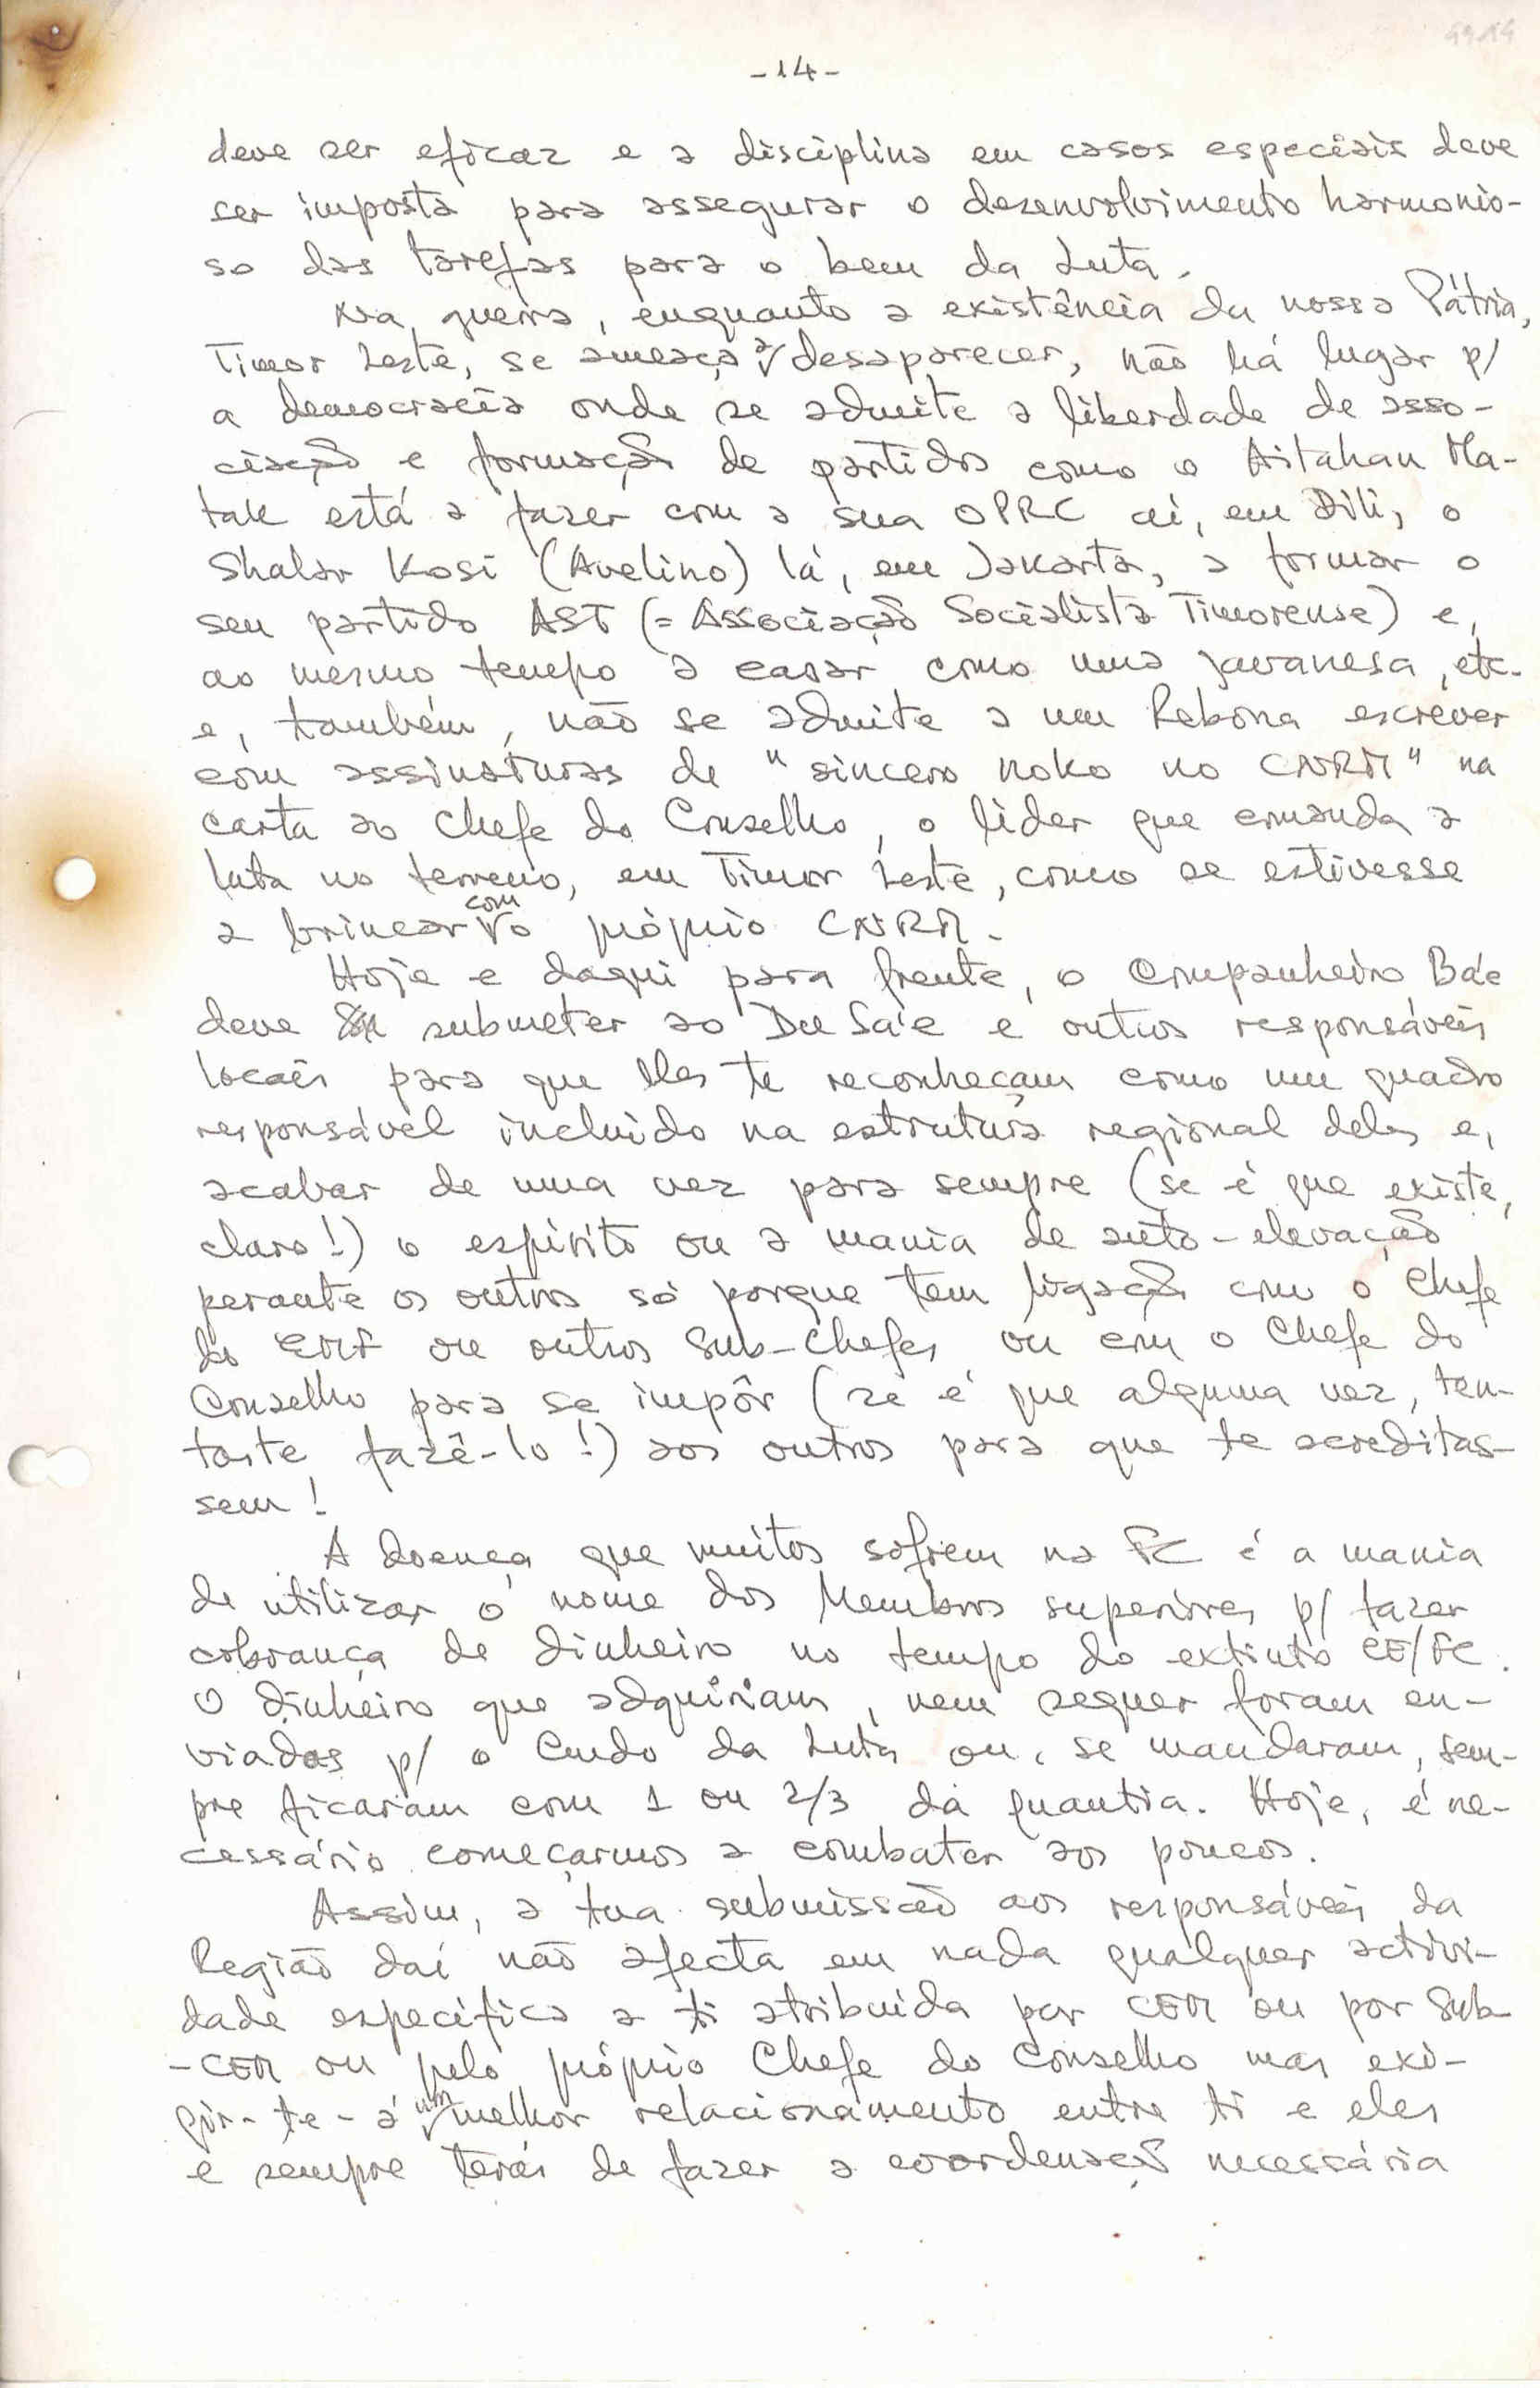 -14-
deve ser eficaz e a disciplina em casos especiais deve
ser imposta para assegurar o desenvolvimento harmonio-
so das tarefas para o bem da Luta.
Na guerra, enquanto a existência da nossa Pátria,
Timor Leste, se ameaça a desaparecer, não há lugar p/
a democracia onde se admite a liberdade de asso-
ciação e formação de partidos como o Aitahan Ma-
tak está a fazer com a sua OPRC aí, em Dili, o
Shalar Kosi (Avelino) lá, em Jakarta, a formar o
seu partido AST (= Associação Socialista Timorense) e,
ao mesmo tempo a casar como uma javanesa, etc.
e, também, não se admite a um Rebona escrever
com assinaturas de "sincero noko no CNRM" na
carta ao Chefe do Conselho, o líder que comanda a
luta no terreno, em Timor Leste, como se estivesse
a brincar com o próprio CNRM.
Hoje e daqui para frente, o Companheiro Ba'e
deve submeter ao Du Sa'e e outros responsáveis
locais para que eles te reconheçam como um quadro
responsável incluido na estrutura regional deles e,
acabar de uma vez para sempre (se é que existe,
claro!) o espírito ou a mania de auto-elevação
perante os outros só porque tem ligação com o Chefe
do EMF ou outros Sub-Chefes ou com o Chefe do
Conselho para se impôr (se é que alguma vez, ten-
taste fazê-lo!) aos outros para que te acreditas-
sem!
A doença que muitos sofrem na FC é a mania
de utilizar o nome dos Membros superiores p/ fazer
cobrança de dinheiro no tempo do extinto CE/FC.
O dinheiro que adquiriam, nem sequer foram en-
viados p/ o Cmdo da Luta ou, se mandaram, sem-
pre ficaram com 1 ou 2/3 da quantia. Hoje, é ne-
cessário começarmos a combater aos poucos.
Assim, a tua submissão aos responsáveis da
Região daí não afecta em nada qualquer activi-
dade específica a ti atribuida por CEM ou por Sub-
-CEM ou pelo próprio Chefe do Conselho mas exi-
gir-te-á um melhor relacionamento entre ti e eles
e sempre terás de fazer a coordenação necessária